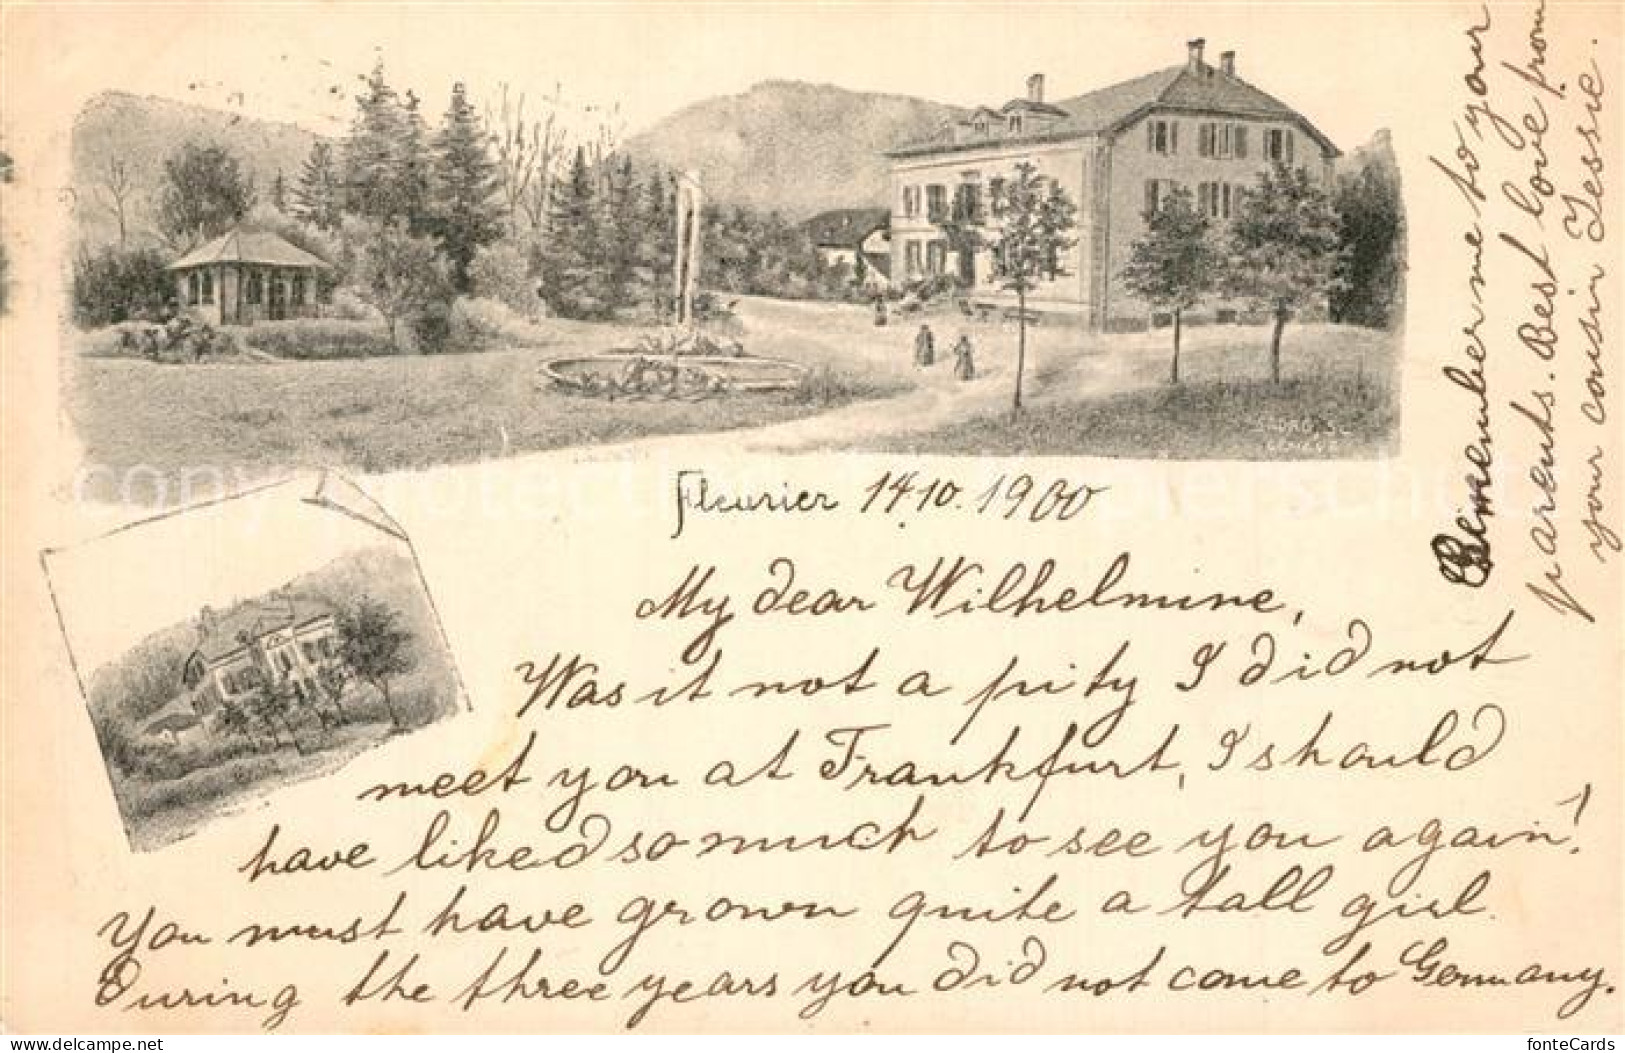 Fleurier 14.10.1900
My dear Wilhelmine,
Was it not a pity I did not
meet you at Frankfurt, I should
have liked so much to see you again!
You must have grown quite a tall girl
During the three years you did not come to Germany.
Rememberme to your
parents. Best love from
your cousin Jessie.
delcampe.net
fonteCards